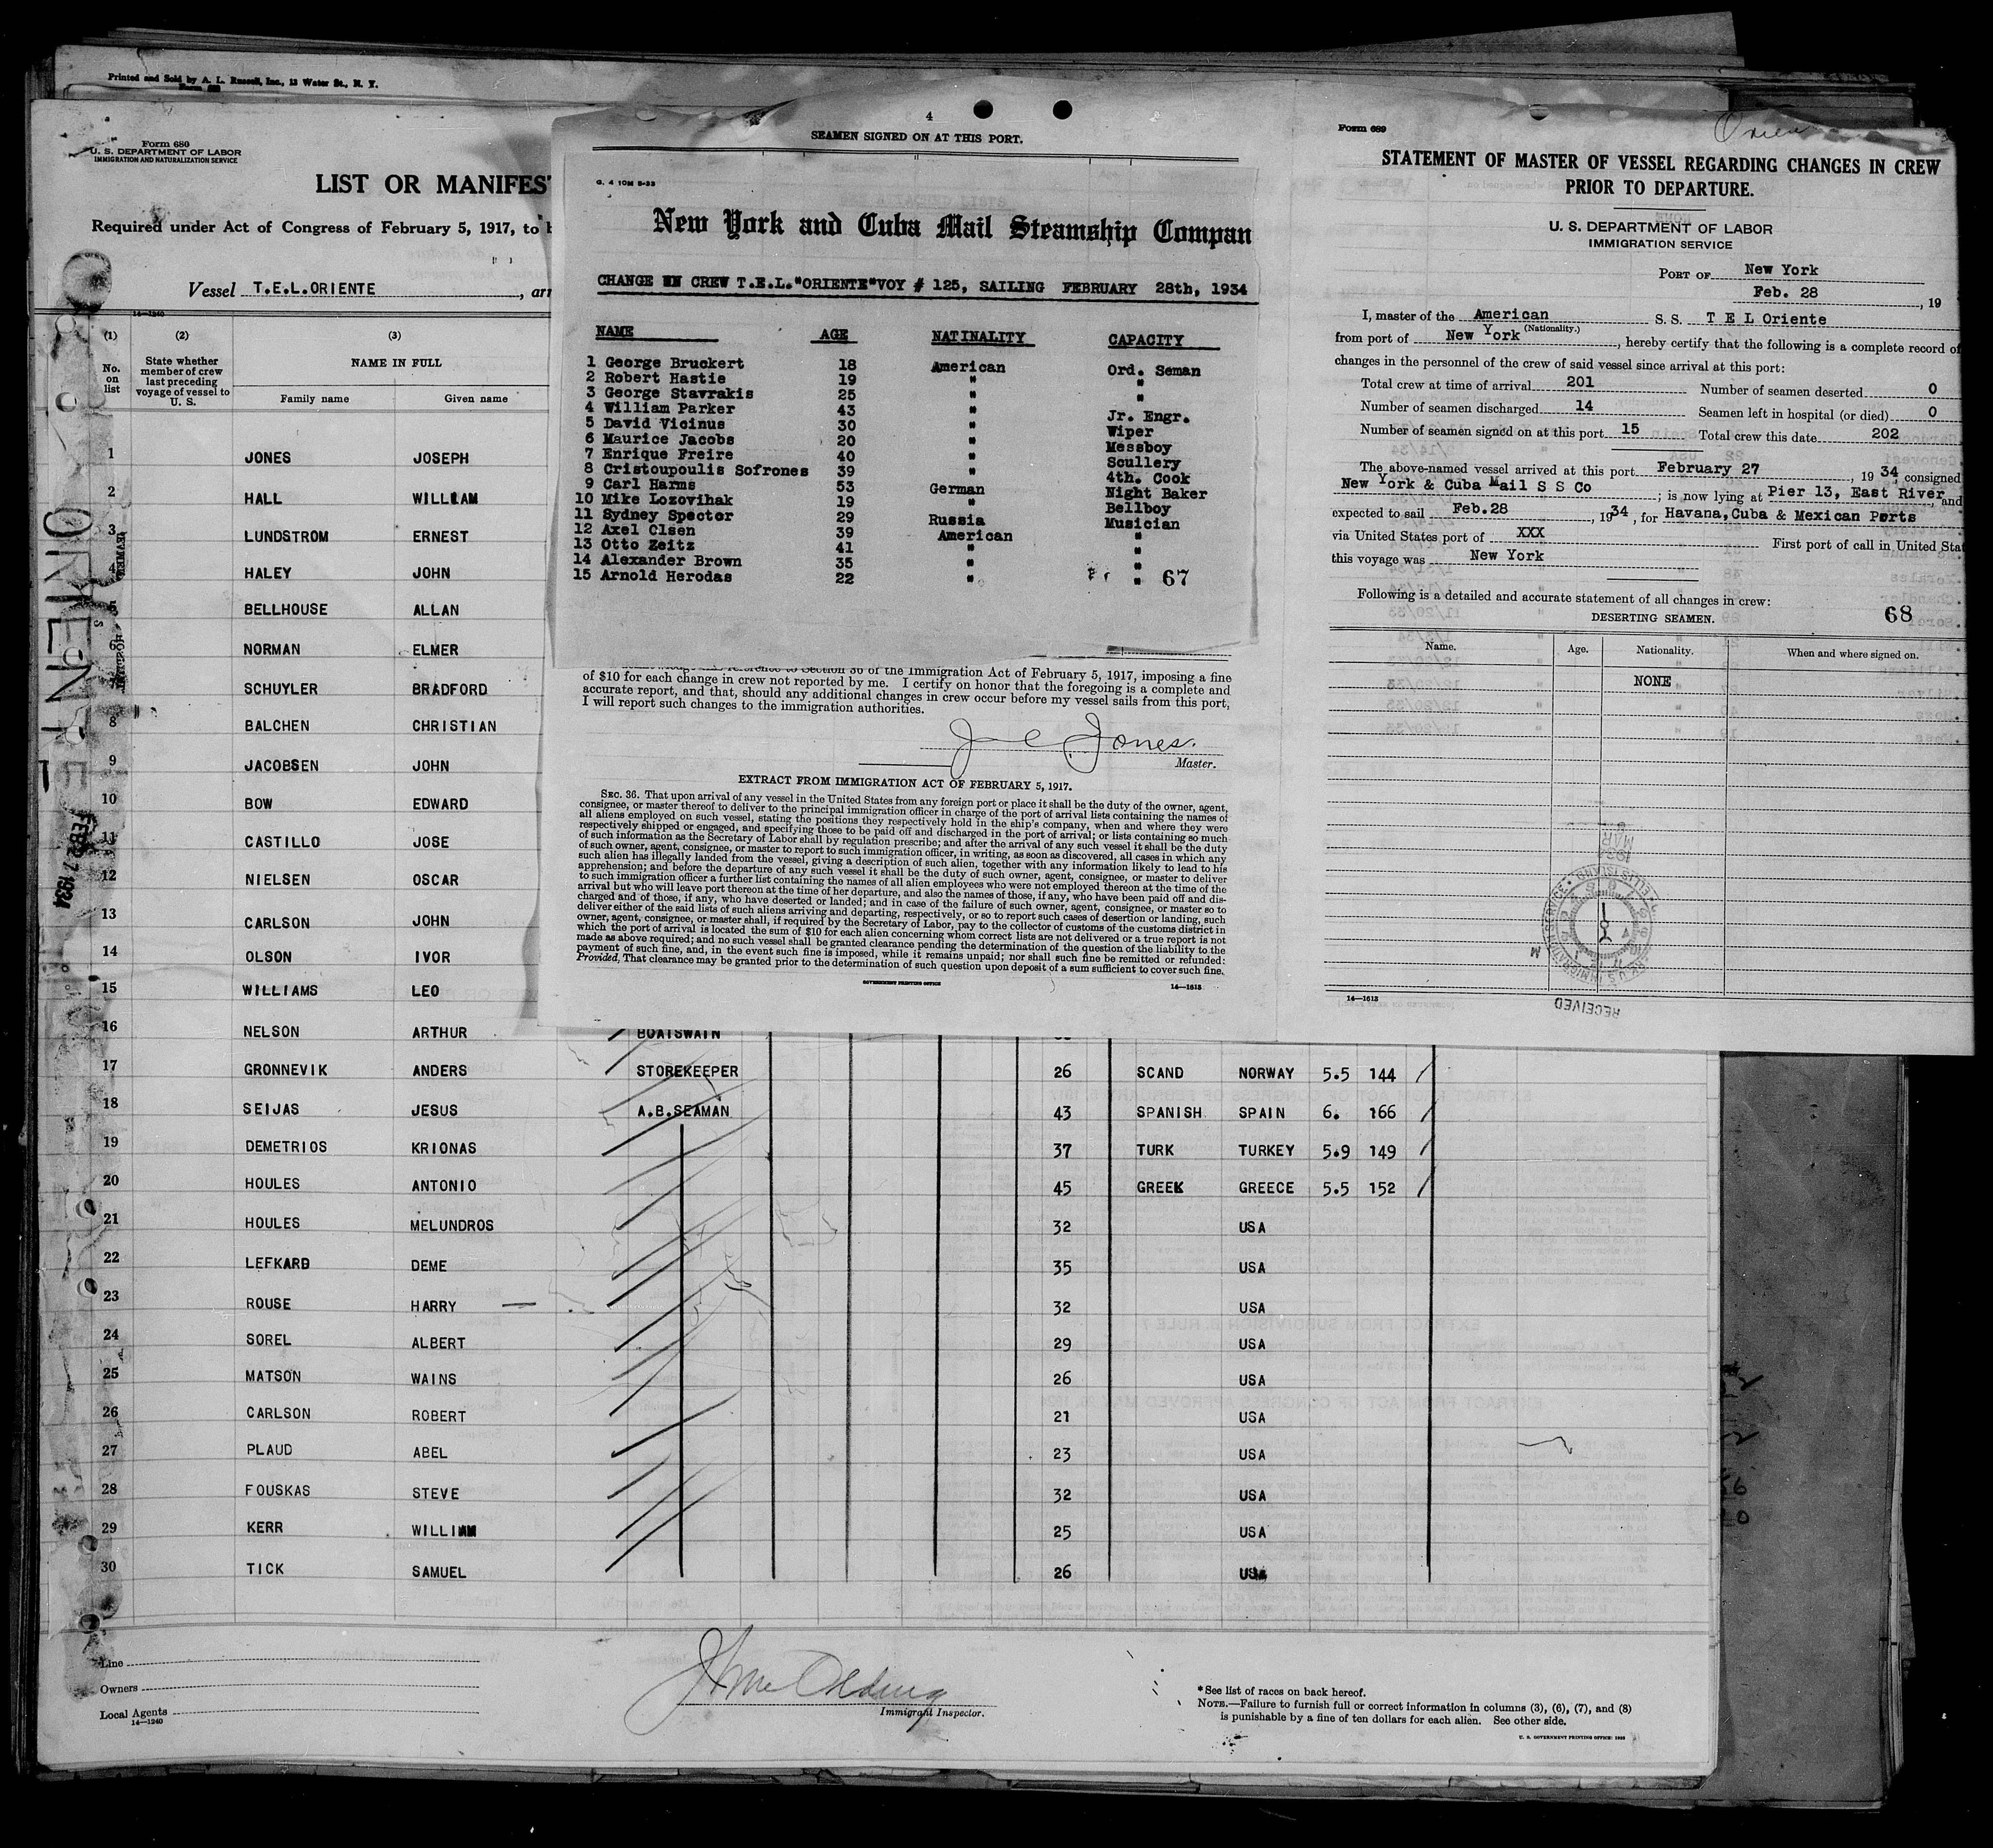 Printed and Sold by A. L. Russell, Inc., 12 Water St., N. Y.
Form 680
U. S. DEPARTMENT OF LABOR
IMMIGRATION AND NATURALIZATION SERVICE
LIST OR MANIFES
Required under Act of Congress of February 5, 1917, to b
Vessel T.E.L.ORIENTE, arr
14—1240
(1) (2) (3)
No. on list
State whether member of crew last preceding voyage of vessel to U. S.
NAME IN FULL
Family name Given name
1 JONES JOSEPH
2 HALL WILLIAM
3 LUNDSTROM ERNEST
4 HALEY JOHN
5 BELLHOUSE ALLAN
6 NORMAN ELMER
7 SCHUYLER BRADFORD
8 BALCHEN CHRISTIAN
9 JACOBSEN JOHN
10 BOW EDWARD
11 CASTILLO JOSE
12 NIELSEN OSCAR
13 CARLSON JOHN
14 OLSON IVOR
15 WILLIAMS LEO
16 NELSON ARTHUR BOATSWAIN
17 GRONNEVIK ANDERS STOREKEEPER 26 SCAND NORWAY 5.5 144
18 SEIJAS JESUS A.B.SEAMAN 43 SPANISH SPAIN 6. 166
19 DEMETRIOS KRIONAS 37 TURK TURKEY 5.9 149
20 HOULES ANTONIO 45 GREEK GREECE 5.5 152
21 HOULES MELUNDROS 32 USA
22 LEFKARD DEME 35 USA
23 ROUSE HARRY — 32 USA
24 SOREL ALBERT 29 USA
25 MATSON WAINS 26 USA
26 CARLSON ROBERT 21 USA
27 PLAUD ABEL 23 USA
28 FOUSKAS STEVE 32 USA
29 KERR WILLIAM 25 USA
30 TICK SAMUEL 26 USA
Line
Owners
Local Agents
14—1240
Immigrant Inspector.
*See list of races on back hereof.
NOTE.—Failure to furnish full or correct information in columns (3), (6), (7), and (8)
is punishable by a fine of ten dollars for each alien. See other side.
U. S. GOVERNMENT PRINTING OFFICE: 1933
ORIENTE
FEB 27 1934
4
SEAMEN SIGNED ON AT THIS PORT.
G. 4 10M 5-33
New York and Cuba Mail Steamship Compan
CHANGE IN CREW T.E.L."ORIENTE"VOY # 125, SAILING FEBRUARY 28th, 1934
NAME AGE NATINALITY CAPACITY
1 George Bruckert 18 American Ord. Seman
2 Robert Hastie 19 " "
3 George Stavrakis 25 " "
4 William Parker 43 " Jr. Engr.
5 David Vicinus 30 " Wiper
6 Maurice Jacobs 20 " Messboy
7 Enrique Freire 40 " Scullery
8 Cristoupoulis Sofrones 39 " 4th. Cook
9 Carl Harms 53 German Night Baker
10 Mike Lozovihak 19 " Bellboy
11 Sydney Spector 29 Russia Musician
12 Axel Clsen 39 American "
13 Otto Zeitz 41 " "
14 Alexander Brown 35 " "
15 Arnold Herodas 22 " "
67
reference to Section 36 of the Immigration Act of February 5, 1917, imposing a fine
of $10 for each change in crew not reported by me. I certify on honor that the foregoing is a complete and
accurate report, and that, should any additional changes in crew occur before my vessel sails from this port,
I will report such changes to the immigration authorities.
J C Jones.
Master.
EXTRACT FROM IMMIGRATION ACT OF FEBRUARY 5, 1917.
SEC. 36. That upon arrival of any vessel in the United States from any foreign port or place it shall be the duty of the owner, agent,
consignee, or master thereof to deliver to the principal immigration officer in charge of the port of arrival lists containing the names of
all aliens employed on such vessel, stating the positions they respectively hold in the ship's company, when and where they were
respectively shipped or engaged, and specifying those to be paid off and discharged in the port of arrival; or lists containing so much
of such information as the Secretary of Labor shall by regulation prescribe; and after the arrival of any such vessel it shall be the duty
of such owner, agent, consignee, or master to report to such immigration officer, in writing, as soon as discovered, all cases in which any
such alien has illegally landed from the vessel, giving a description of such alien, together with any information likely to lead to his
apprehension; and before the departure of any such vessel it shall be the duty of such owner, agent, consignee, or master to deliver
to such immigration officer a further list containing the names of all alien employees who were not employed thereon at the time of the
arrival but who will leave port thereon at the time of her departure, and also the names of those, if any, who have been paid off and dis-
charged and of those, if any, who have deserted or landed; and in case of the failure of such owner, agent, consignee, or master so to
deliver either of the said lists of such aliens arriving and departing, respectively, or so to report such cases of desertion or landing, such
owner, agent, consignee, or master shall, if required by the Secretary of Labor, pay to the collector of customs of the customs district in
which the port of arrival is located the sum of $10 for each alien concerning whom correct lists are not delivered or a true report is not
made as above required; and no such vessel shall be granted clearance pending the determination of the question of the liability to the
payment of such fine, and, in the event such fine is imposed, while it remains unpaid; nor shall such fine be remitted or refunded:
Provided, That clearance may be granted prior to the determination of such question upon deposit of a sum sufficient to cover such fine.
GOVERNMENT PRINTING OFFICE 14—1613
Form 689
STATEMENT OF MASTER OF VESSEL REGARDING CHANGES IN CREW
PRIOR TO DEPARTURE.
U. S. DEPARTMENT OF LABOR
IMMIGRATION SERVICE
PORT OF New York
Feb. 28, 19
I, master of the American S. S. T E L Oriente
(Nationality.)
from port of New York, hereby certify that the following is a complete record of
changes in the personnel of the crew of said vessel since arrival at this port:
Total crew at time of arrival 201 Number of seamen deserted 0
Number of seamen discharged 14 Seamen left in hospital (or died) 0
Number of seamen signed on at this port 15 Total crew this date 202
The above-named vessel arrived at this port February 27, 1934, consigned
New York & Cuba Mail S S Co; is now lying at Pier 13, East River, and
expected to sail Feb.28, 1934, for Havana, Cuba & Mexican Ports
via United States port of XXX First port of call in United Stat
this voyage was New York
Following is a detailed and accurate statement of all changes in crew:
68
DESERTING SEAMEN.
Name. Age. Nationality. When and where signed on.
NONE
14—1613
MAR
1934
RECEIVED